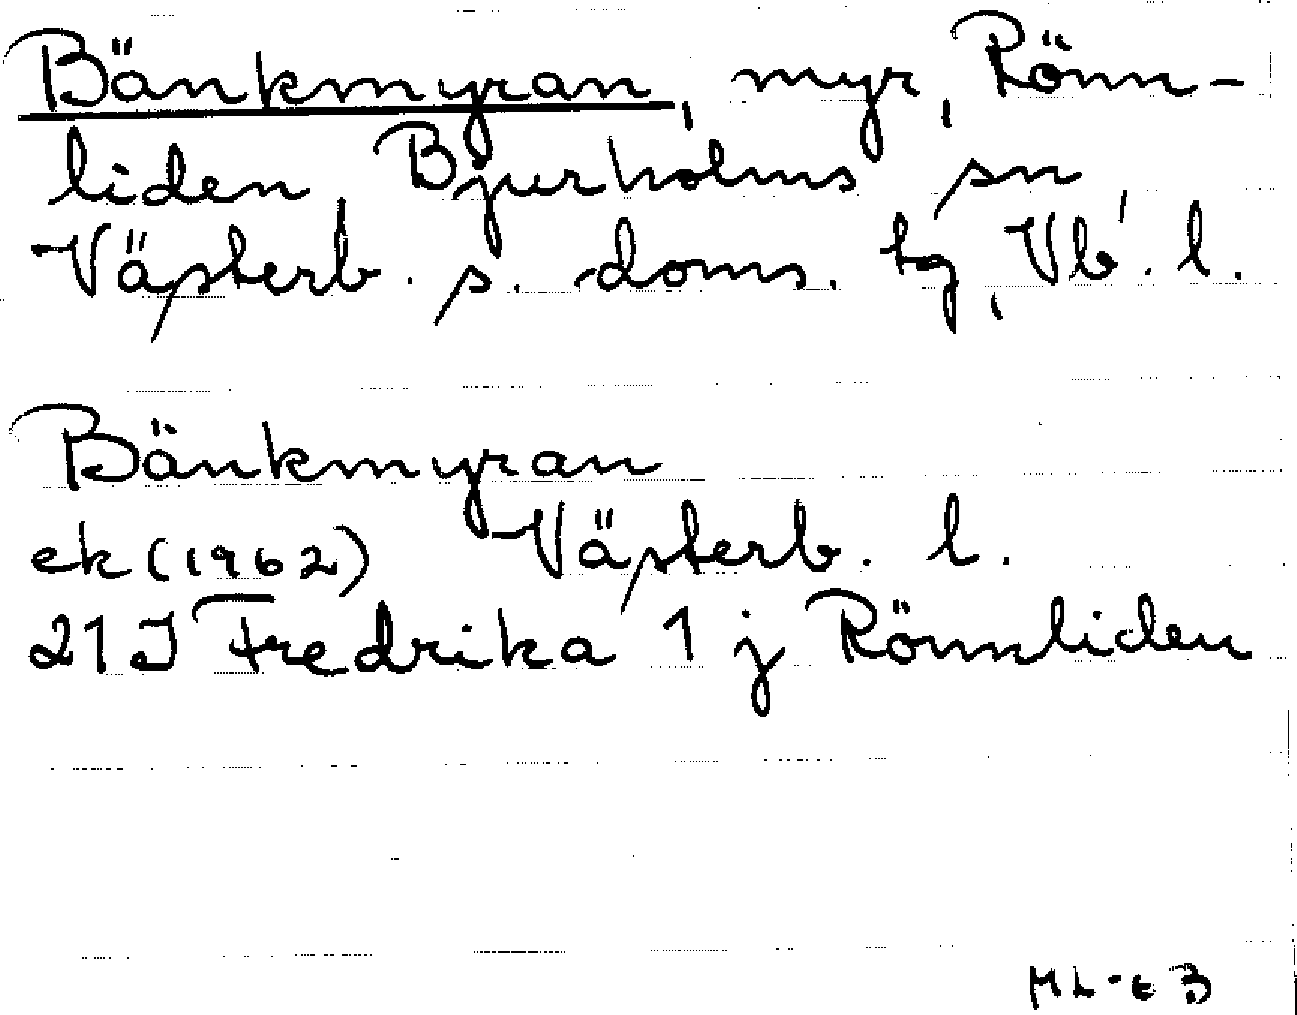 Bänkmyran, myr, Rönn-
liden, Bjurholms sn
Västerb. s. doms. tg, Vb. l.
Bänkmyran
ek (1962) Västerb. l.
21J Fredrika 1 j Rönnliden
ML-63